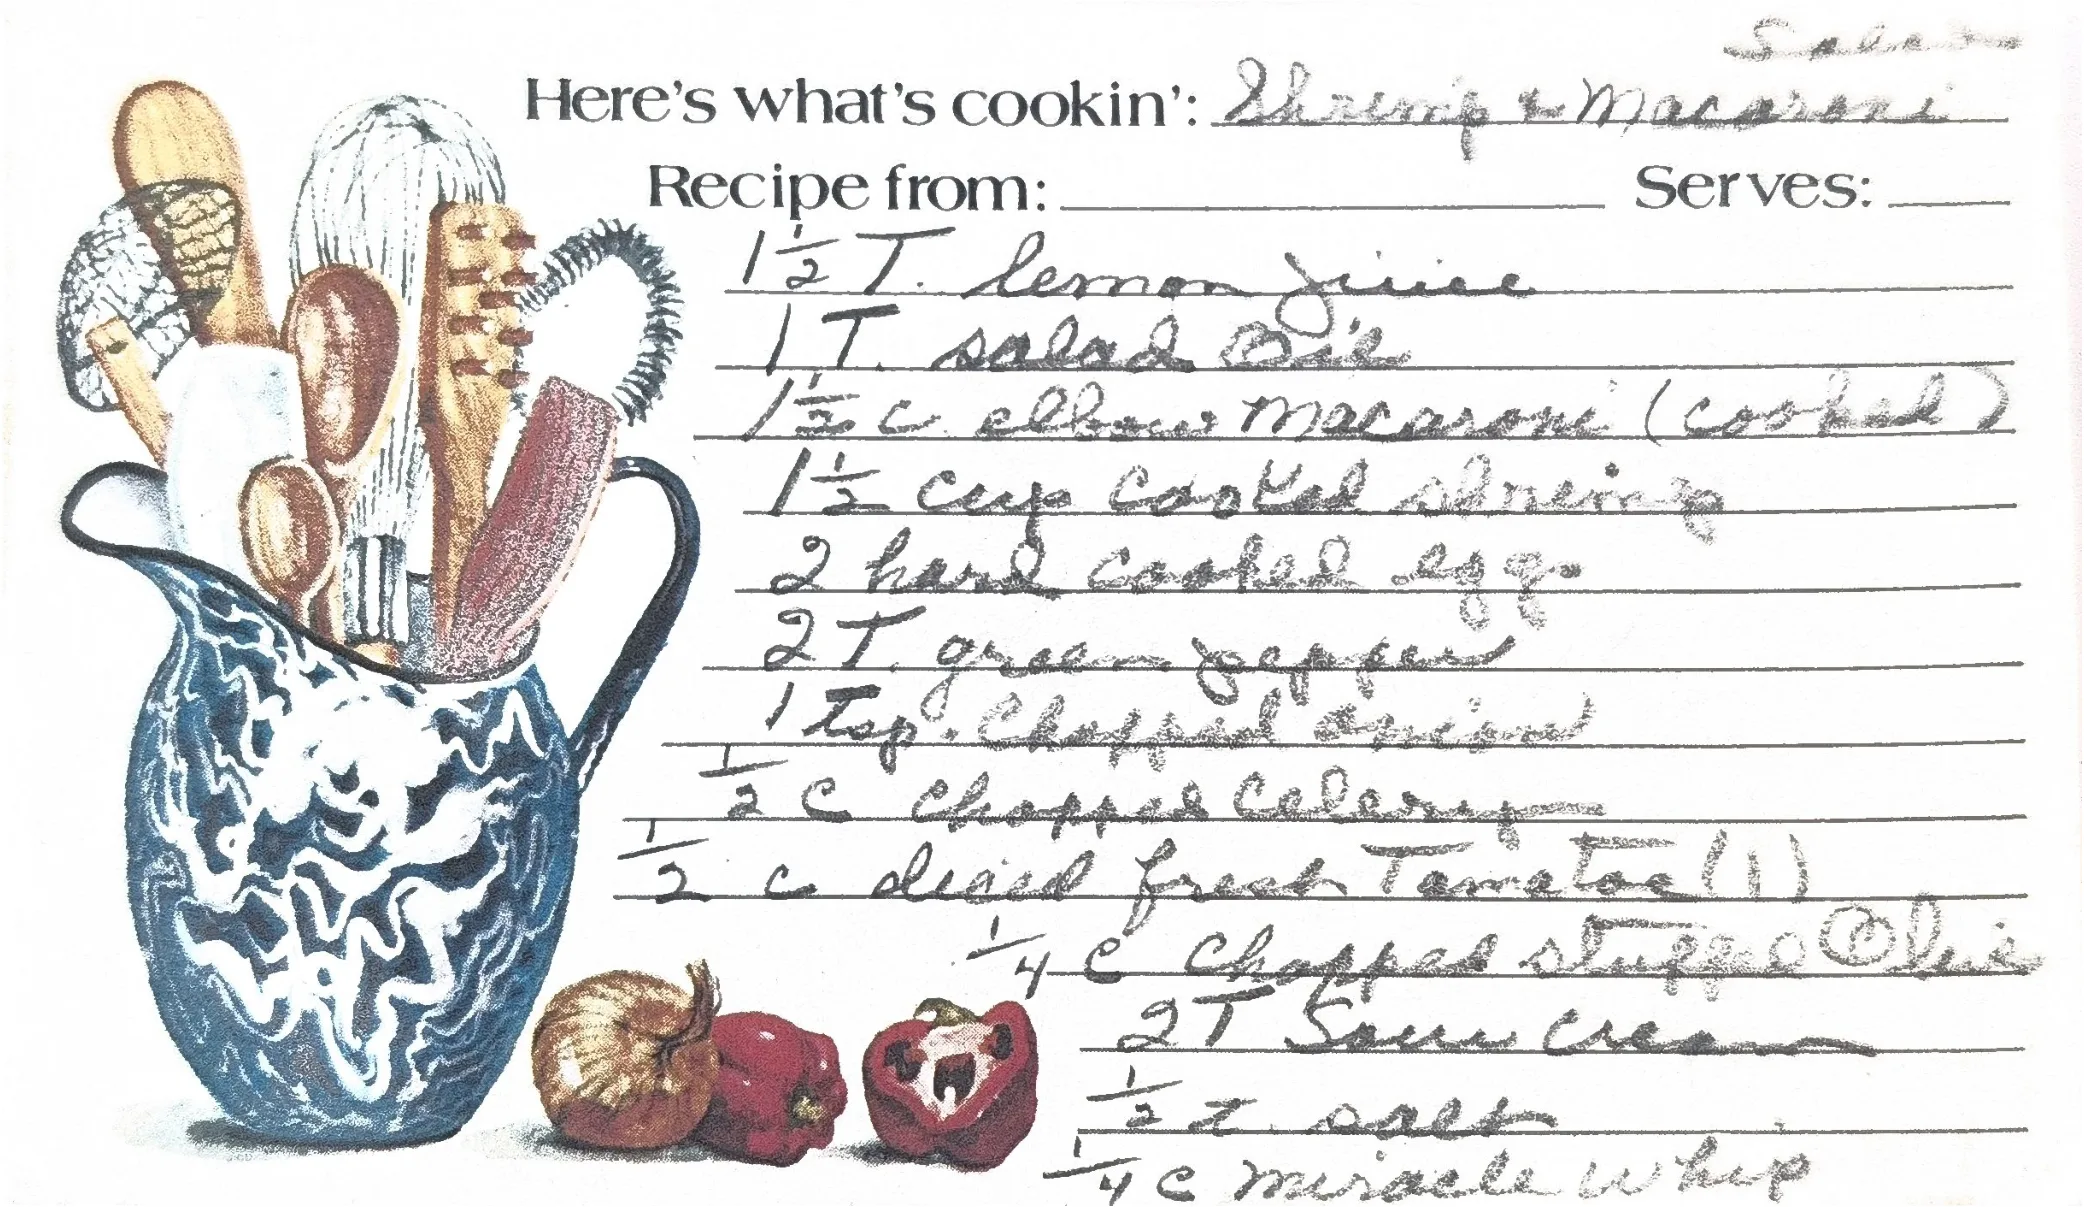 Salad
Here's what's cookin': Shrimp & Macaroni
Recipe from: Serves:
1 1/2 T. lemon juice
1 T. salad Oil
1 1/2 c. elbow macaroni (cooked)
1 1/2 cup cooked shrimp
2 hard cooked egg
2 T. green pepper
1 tsp. Chopped onion
1/2 c chopped Celery
1/2 c diced fresh Tomatoe (1)
1/4 c chopped stuffed Olive
2 T Sour cream
1/2 t. salt
1/4 c miracle whip